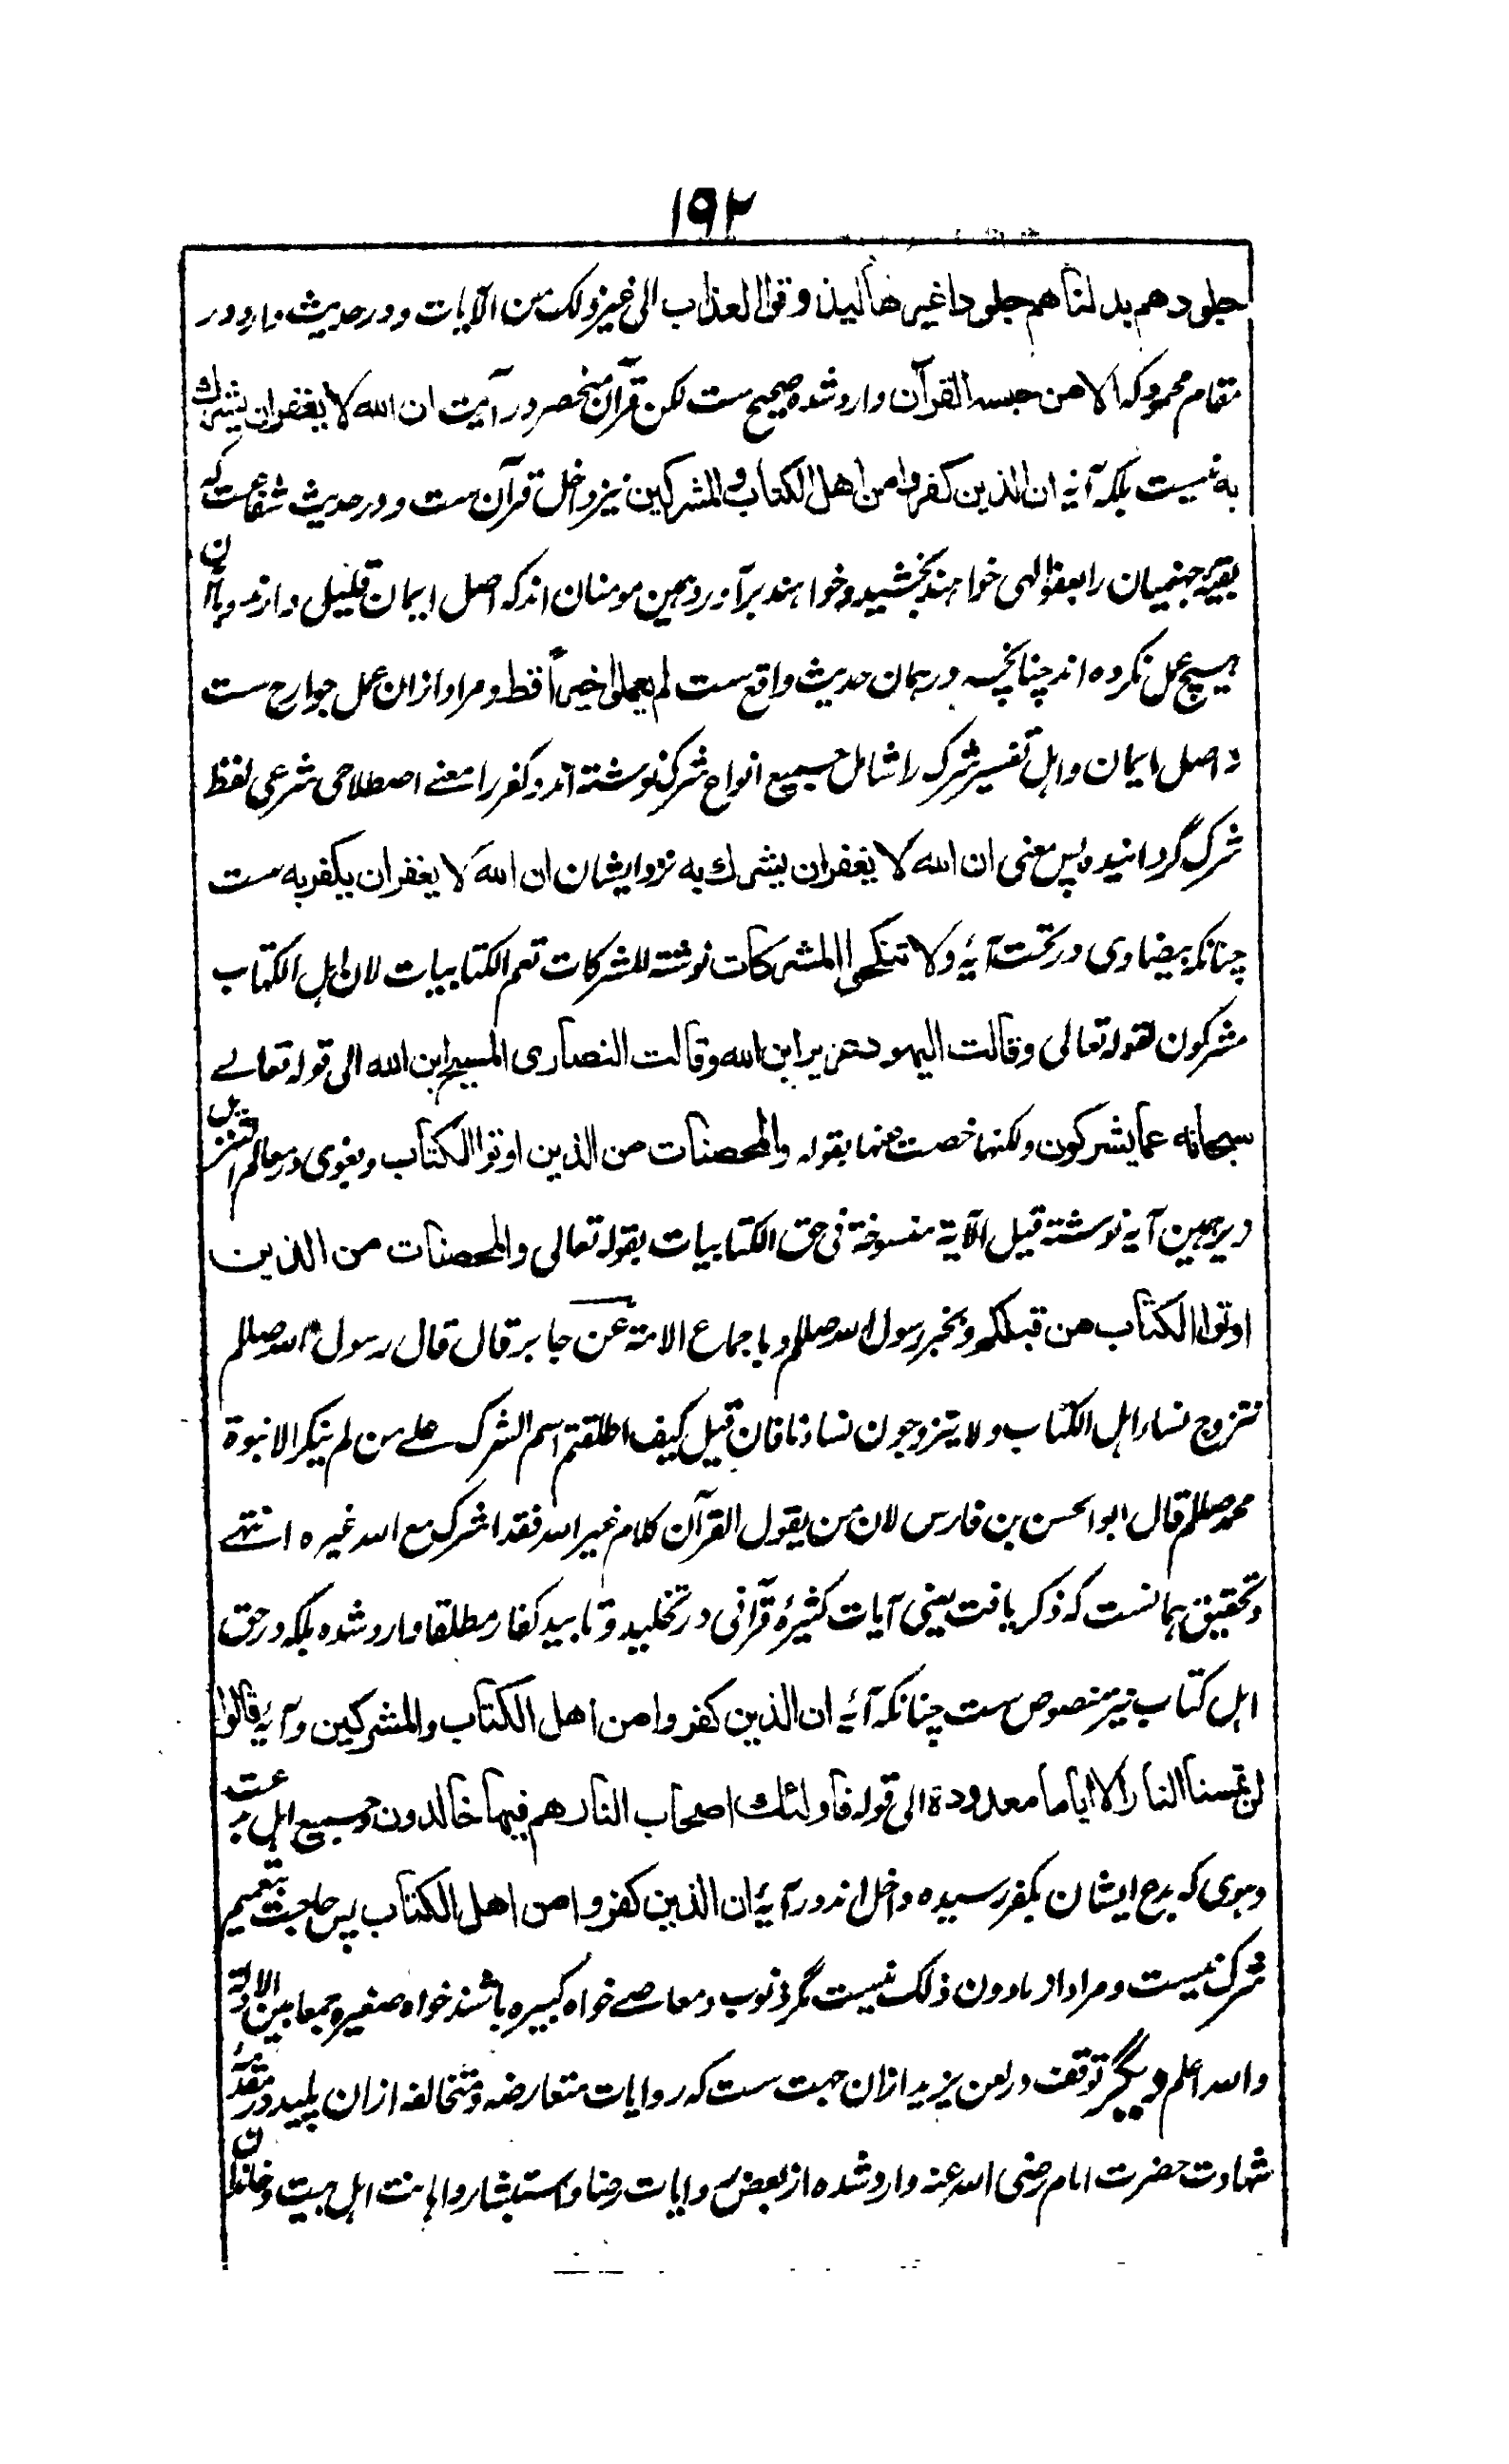 ۱۹۲
جلودهم بدلناهم جلودا غيرها ليذوقوا العذاب الی غیر ذلک من الآیات و در حدیث وارد در
مقام محمود که الا من حبسه القرآن وارد شده صحیح ست لکن قرآن منحصر در آیت ان الله لا يغفر ان يشرك
به نیست بلکه آیه ان الذين كفروا من اهل الكتاب و المشركين نیز داخل قرآن ست و در حدیث شفاعت که
بقیه جهنمیان را بعفو الهی خواهند بخشید و خواهند برآورد همین مومنان اند که اصل ایمان قلیل دارند و با آن
هیچ عمل نکرده اند چنانچه در همان حدیث واقع ست لم يعملوا خيراً قط و مراد ازان عمل جوارح ست
نه اصل ایمان و اهل تفسیر شرک را شامل جمیع انواع شرک نوشته اند و کفر را معنے اصطلاحی شرعی لفظ
شرک گردانیده پس معنی ان الله لا يغفر ان يشرك به نزد ایشان ان الله لا يغفر ان يكفر به ست
چنانکه بیضاوی در تحت آیۂ ولا تنكحوا المشركات نوشته للشرکات تعم الکتابیات لان اهل الکتاب
مشرکون لقوله تعالی وقالت اليهود عزير ابن الله وقالت النصارى المسيح ابن الله الی قوله تعالے
سبحانه عما يشركون ولکنها خصت عنها بقوله والمحصنات من الذين اوتوا الكتاب و بغوی در معالم التنزیل
در همین آیه نوشته قیل الآیة منسوخة فی حق الکتابیات بقوله تعالی والمحصنات من الذين
اوتوا الكتاب من قبلكم وبخبر رسول الله صلعم و باجماع الامة عن جابر قال قال رسول الله صلعم
نتزوج نساء اهل الکتاب ولا یتزوجون نساءنا فان قیل کیف اطلقتم اسم الشرک علے من لم ینکر الا نبوة
محمد صلعم قال ابو الحسن بن فارس لان من یقول القرآن کلام غیر الله فقد اشرک مع الله غیره انتهے
و تحقیق همانست که ذکر یافت یعنی آیات کثیرۂ قرآنی در تخلید و تابید کفار مطلقا وارد شده بلکه در حق
اهل کتاب نیز منصوص ست چنانکه آیۂ ان الذين كفروا من اهل الكتاب والمشركين و آیۂ قالوا
لن تمسنا النار الا اياما معدودة الی قوله فاولئك اصحاب النار هم فيها خالدون و جمیع اهل بدعت
و هوی که بدع ایشان بکفر رسیده داخل اند در آیۂ ان الذين كفروا من اهل الكتاب پس حاجت بتعمیم
شرک نیست و مراد از مادون ذلک نیست مگر ذنوب و معاصے خواه کبیره باشند خواه صغیره جمعا بین الادلة
والله اعلم دیگر توقف در لعن یزید ازان جهت ست که روایات متعارضه و متخالفه ازان پلید در مقدمۂ
شهادت حضرت امام رضی الله عنه وارد شده از بعض روایات رضا و استبشار و اهانت اهل بیت و خاندان